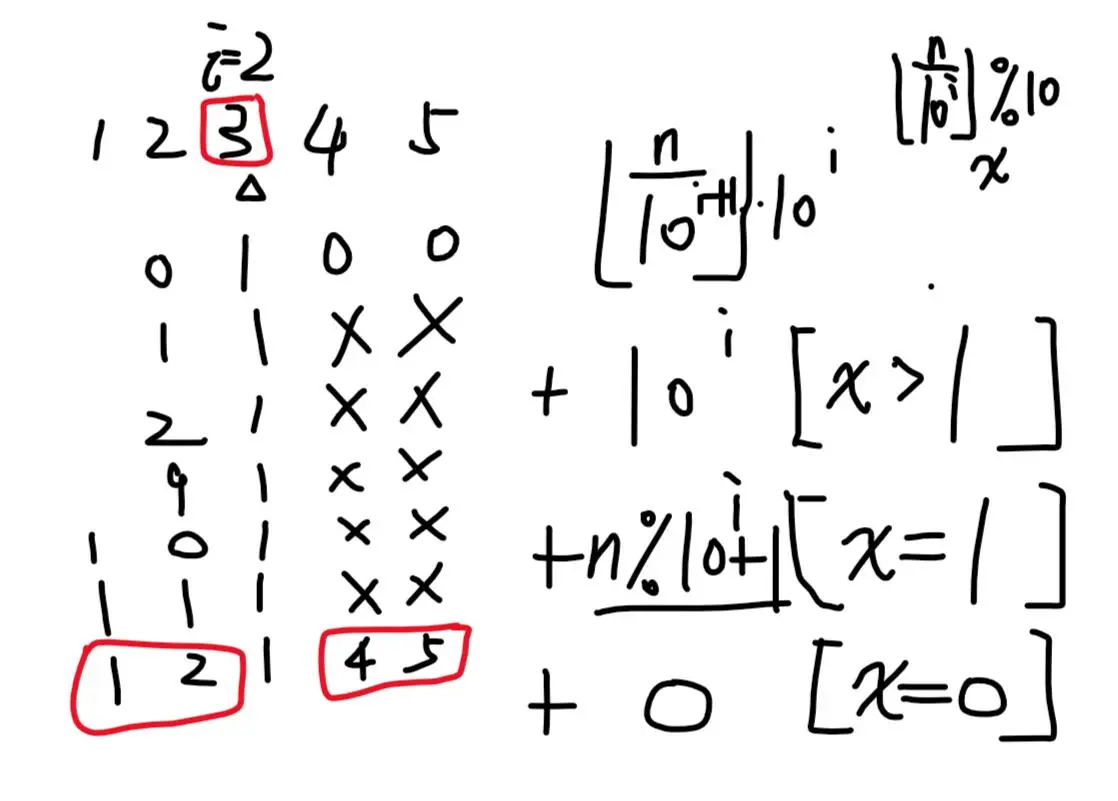 i=2
1 2 3 4 5
△
0 1 0 0
1 1 X X
2 1 X X
9 1 x x
1 0 1 x x
1 1 1 x x
1 2 1 4 5
⌊n/10^i⌋%10
x
⌊n/10^{i+1}⌋·10^i
+ 10^i [x>1]
+n%10^i+1[x=1]
+ 0 [x=0]